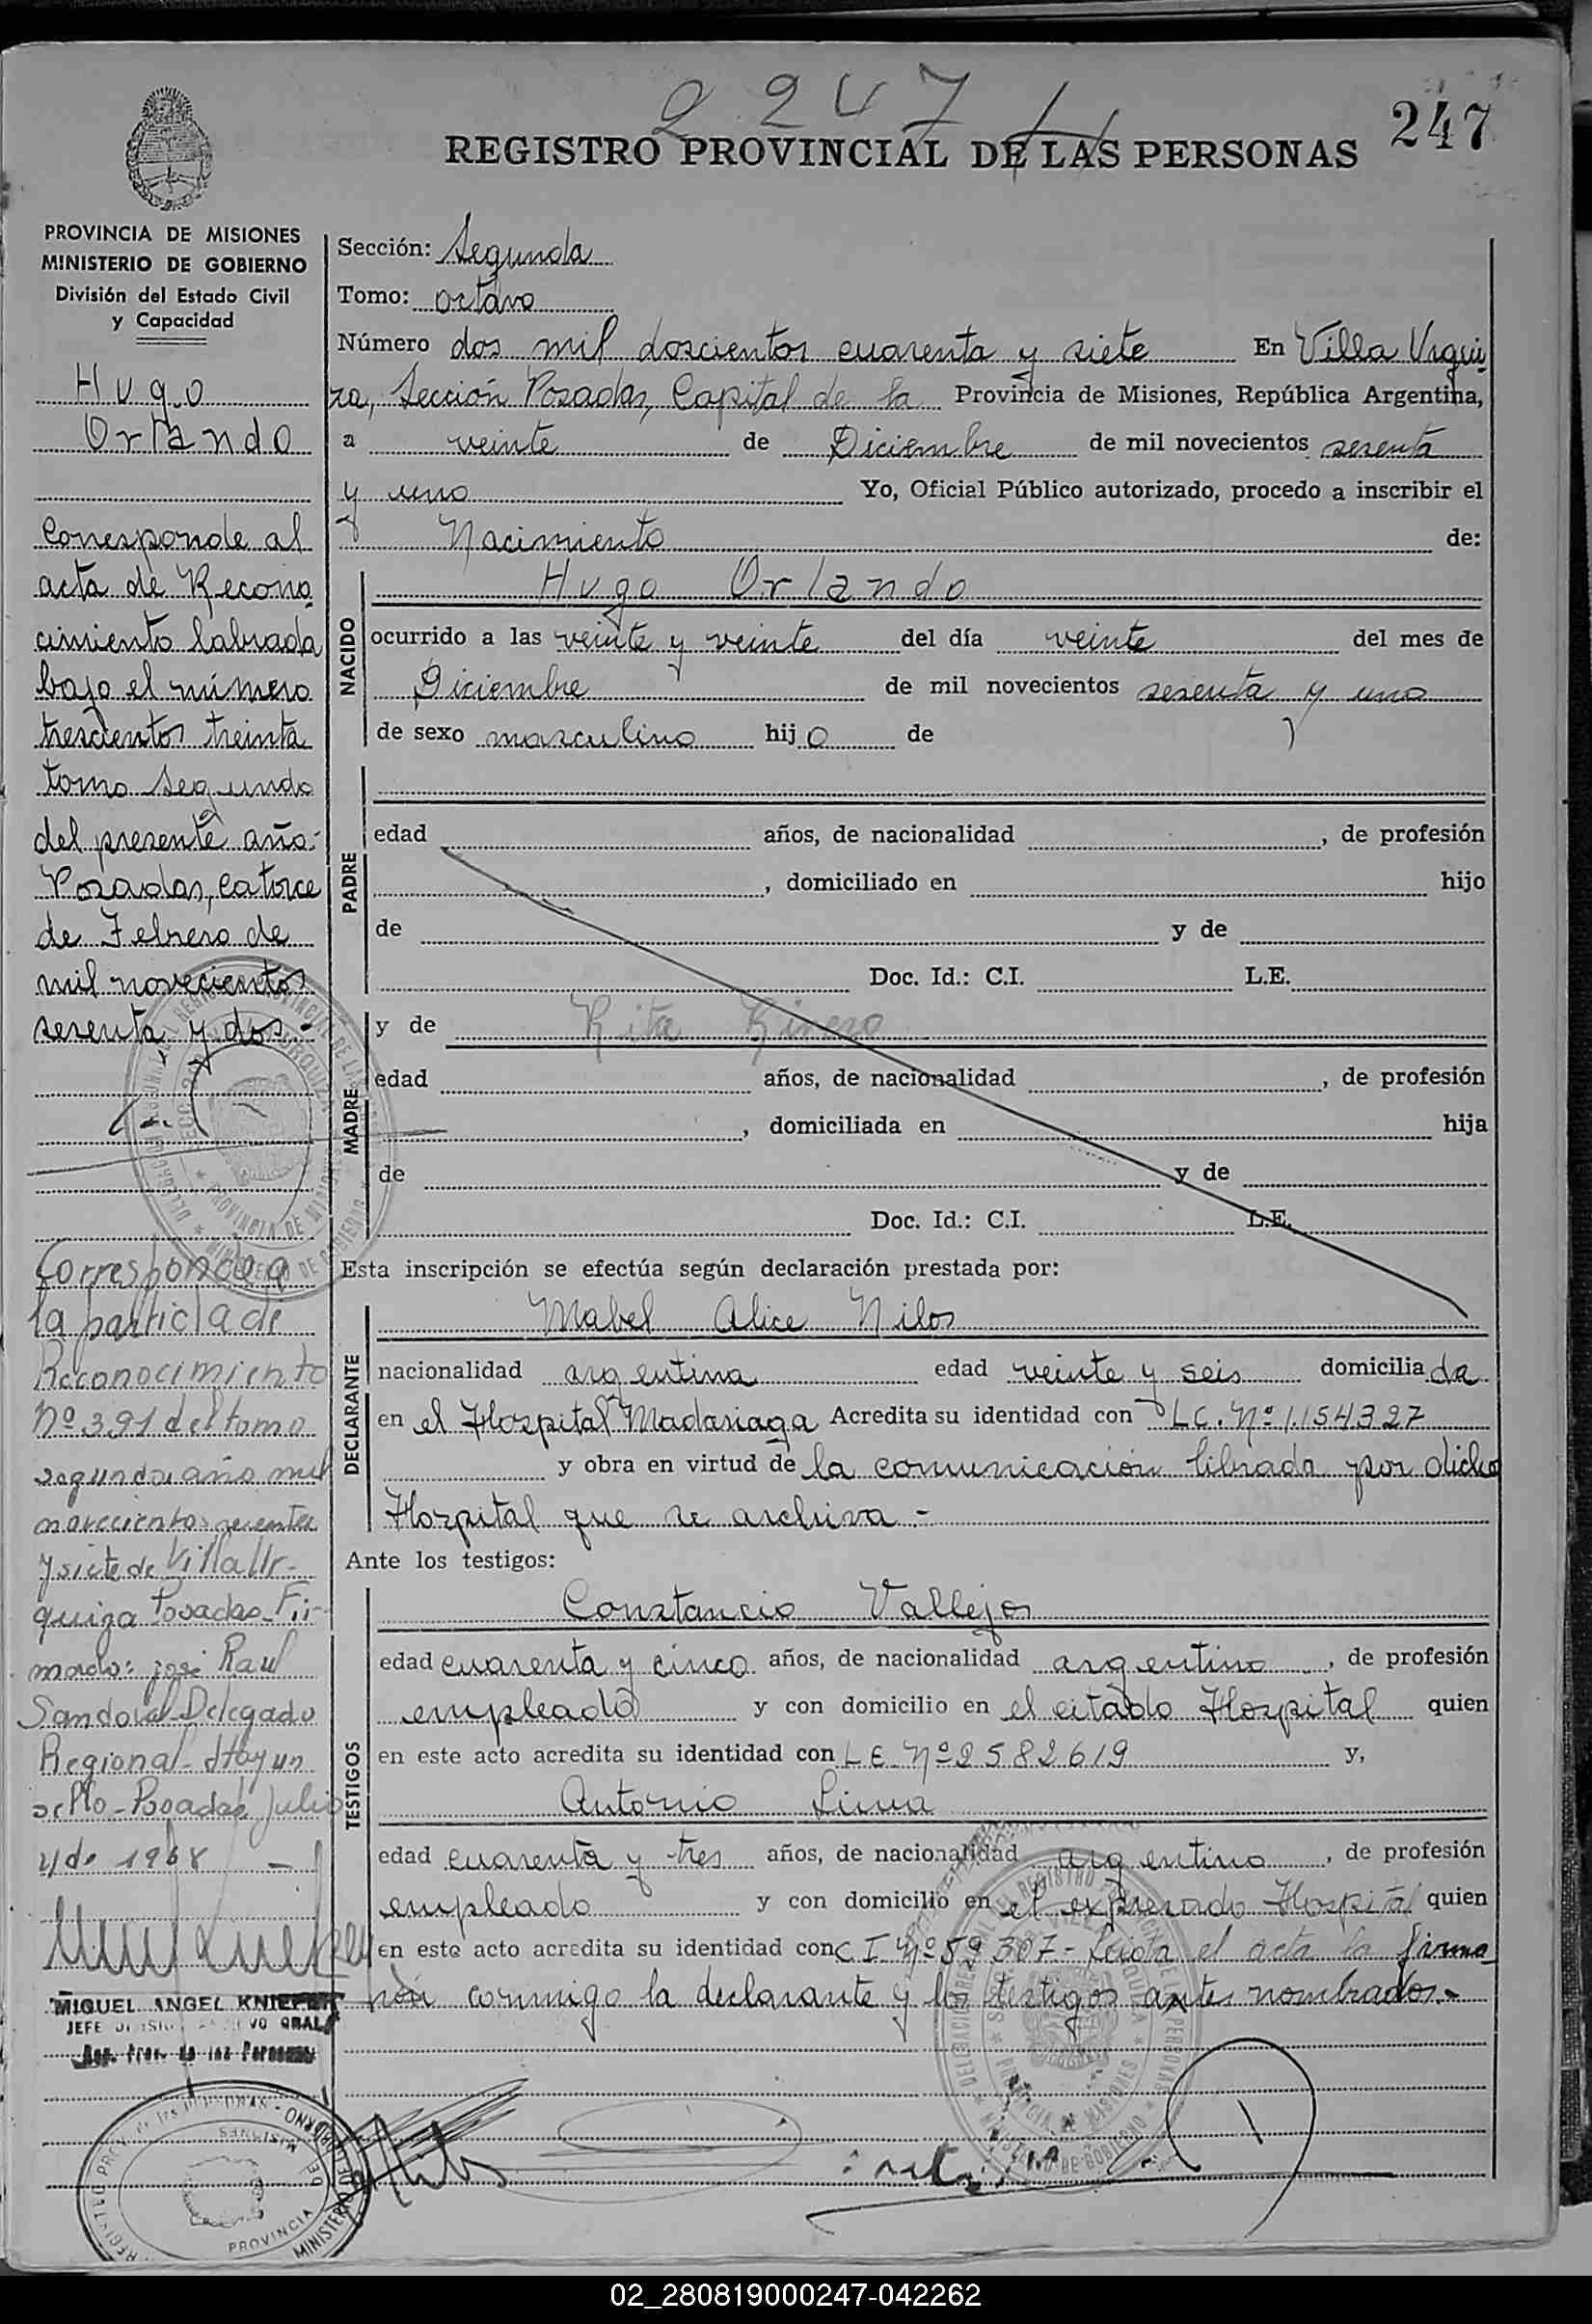 2247
247
REGISTRO PROVINCIAL DE LAS PERSONAS
PROVINCIA DE MISIONES
MINISTERIO DE GOBIERNO
División del Estado Civil
y Capacidad
Hugo
Orlando
Corresponde al
acta de Recono
cimiento labrada
bajo el número
trescientos treinta
tomo segundo
del presente año.
Posadas, catorce
de Febrero de
mil novecientos
sesenta y dos.-
Corresponde a
la partida de
Reconocimiento
Nº 391 del tomo
segundo año mil
novecientos sesenta
y siete de Villa Ur-
quiza Posadas-Fir-
mado: José Raul
Sandoval-Delegado
Regional-Hay un
sello-Posadas, Julio
4 de 1968 -
MIGUEL ANGEL
JEFE
Sección: Segunda
Tomo: octavo
Número dos mil doscientos cuarenta y siete En Villa Urqui-
za, Sección Posadas, Capital de la Provincia de Misiones, República Argentina,
a veinte de Diciembre de mil novecientos sesenta
y uno Yo, Oficial Público autorizado, procedo a inscribir el
Nacimiento de:
NACIDO
Hugo Orlando
ocurrido a las veinte y veinte del día veinte del mes de
Diciembre de mil novecientos sesenta y uno
de sexo masculino hijo de
PADRE
edad años, de nacionalidad , de profesión
, domiciliado en hijo
de y de
Doc. Id.: C.I. L.E.
MADRE
y de Rita
edad años, de nacionalidad , de profesión
, domiciliada en hija
de y de
Doc. Id.: C.I. L.E.
Esta inscripción se efectúa según declaración prestada por:
DECLARANTE
Mabel Alice Nilos
nacionalidad argentina edad veinte y seis domiciliada
en el Hospital Madariaga Acredita su identidad con L.C. Nº 1.154.327
y obra en virtud de la comunicación librada por dicho
Hospital que se archiva.-
Ante los testigos:
TESTIGOS
Constancio Vallejos
edad cuarenta y cinco años, de nacionalidad argentino, de profesión
empleado y con domicilio en el citado Hospital quien
en este acto acredita su identidad con L E Nº 2582619 y,
Antonio Lima
edad cuarenta y tres años, de nacionalidad argentino, de profesión
empleado y con domicilio en el expresado Hospital quien
en este acto acredita su identidad con C I Nº 59.307.- Leida el acta la firma
rón conmigo la declarante y los testigos antes nombrados.-
02_280819000247-042262